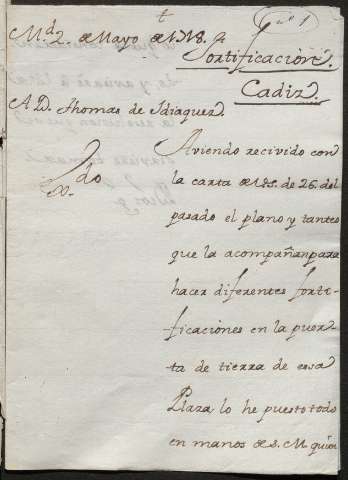 nº 1
M.d 2. de Mayo de 1718.
Fortificacion.
Cadiz.
A D. Thomas de Idiaquez.
Aviendo recivido con
la carta de V.S. de 26. del
pasado el plano y tanteo
que la acompañan para
hacer diferentes forti-
ficaciones en la puer-
ta de tierra de essa
Plaza lo he puesto todo
en manos de S. M. quien